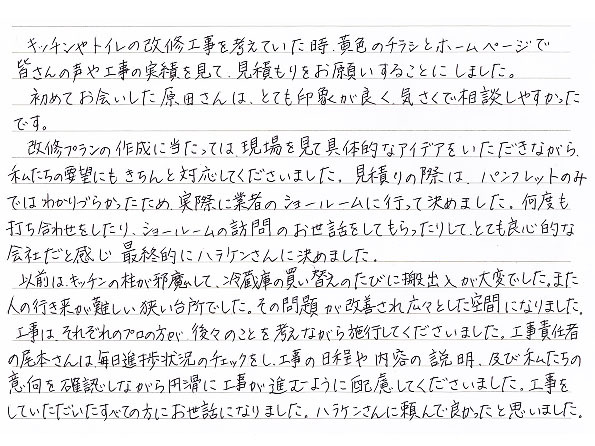 キッチンやトイレの改修工事を考えていた時、黄色のチラシとホームページで
皆さんの声や工事の実績を見て、見積もりをお願いすることにしました。
初めてお会いした原田さんは、とても印象が良く、気さくで相談しやすかった
です。
改修プランの作成に当たっては、現場を見て具体的なアイデアをいただきながら、
私たちの要望にもきちんと対応してくださいました。見積りの際は、パンフレットのみ
ではわかりづらかったため、実際に業者のショールームに行って決めました。何度も
打ち合わせをしたり、ショールームの訪問のお世話をしてもらったりして、とても良心的な
会社だと感じ、最終的にハラケンさんに決めました。
以前は、キッチンの柱が邪魔して、冷蔵庫の買い替えのたびに搬出入が大変でした。また
人の行き来が難しい狭い台所でした。その問題が改善され広々とした空間になりました。
工事は、それぞれのプロの方が後々のことを考えながら施行してくださいました。工事責任者
の尾本さんは、毎日進捗状況のチェックをし、工事の日程や内容の説明、及び私たちの
意向を確認しながら円滑に工事が進むように配慮してくださいました。工事を
していただいたすべての方にお世話になりました。ハラケンさんに頼んで良かったと思いました。